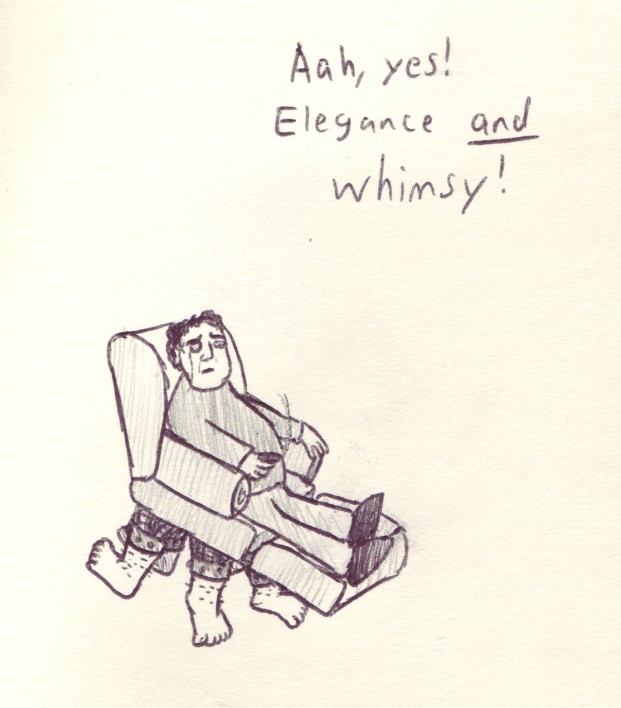 Aah, yes!
Elegance and
whimsy!